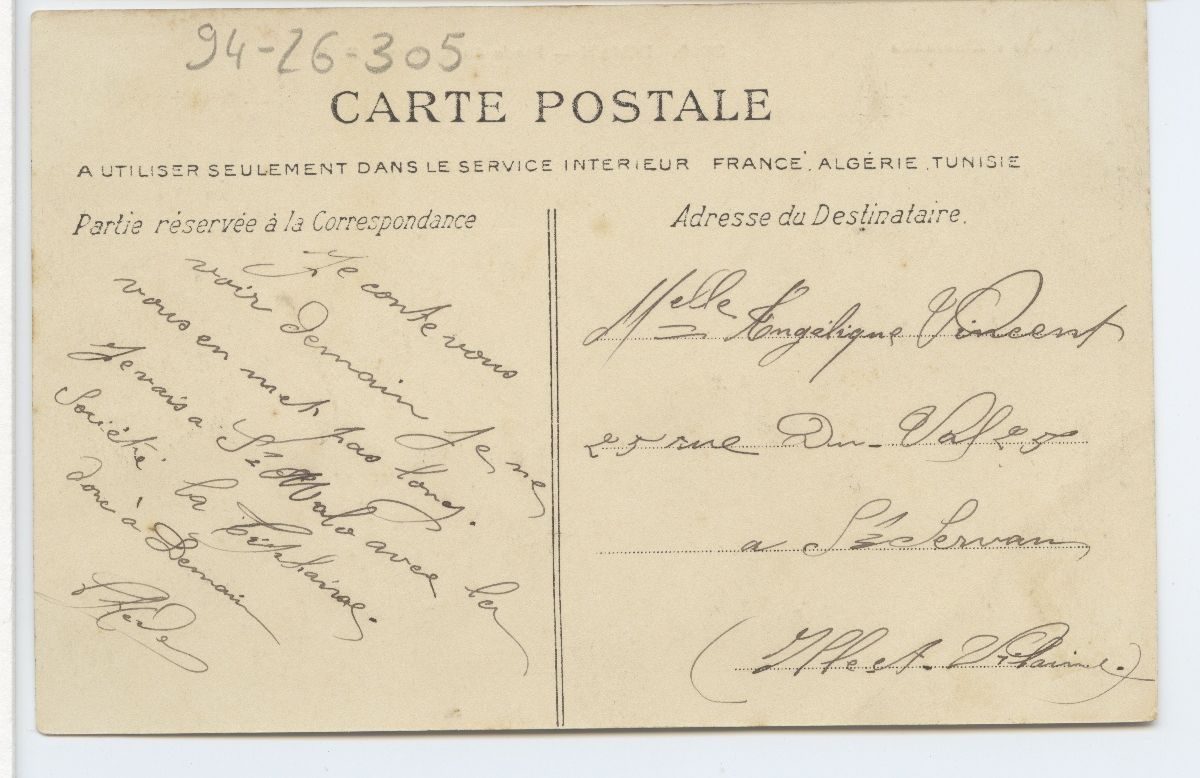 94-26-305
CARTE POSTALE
A UTILISER SEULEMENT DANS LE SERVICE INTERIEUR FRANCE, ALGÉRIE, TUNISIE
Partie réservée à la Correspondance
Je conte vous
voir demain Je ne
vous en met pas long.
Je vais a St Malo avec la
Société la
donc à Demain
Adresse du Destinataire.
Melle Angélique Vincent
25 rue Du Val 25
a St Servan
(Ille et Vilaine)